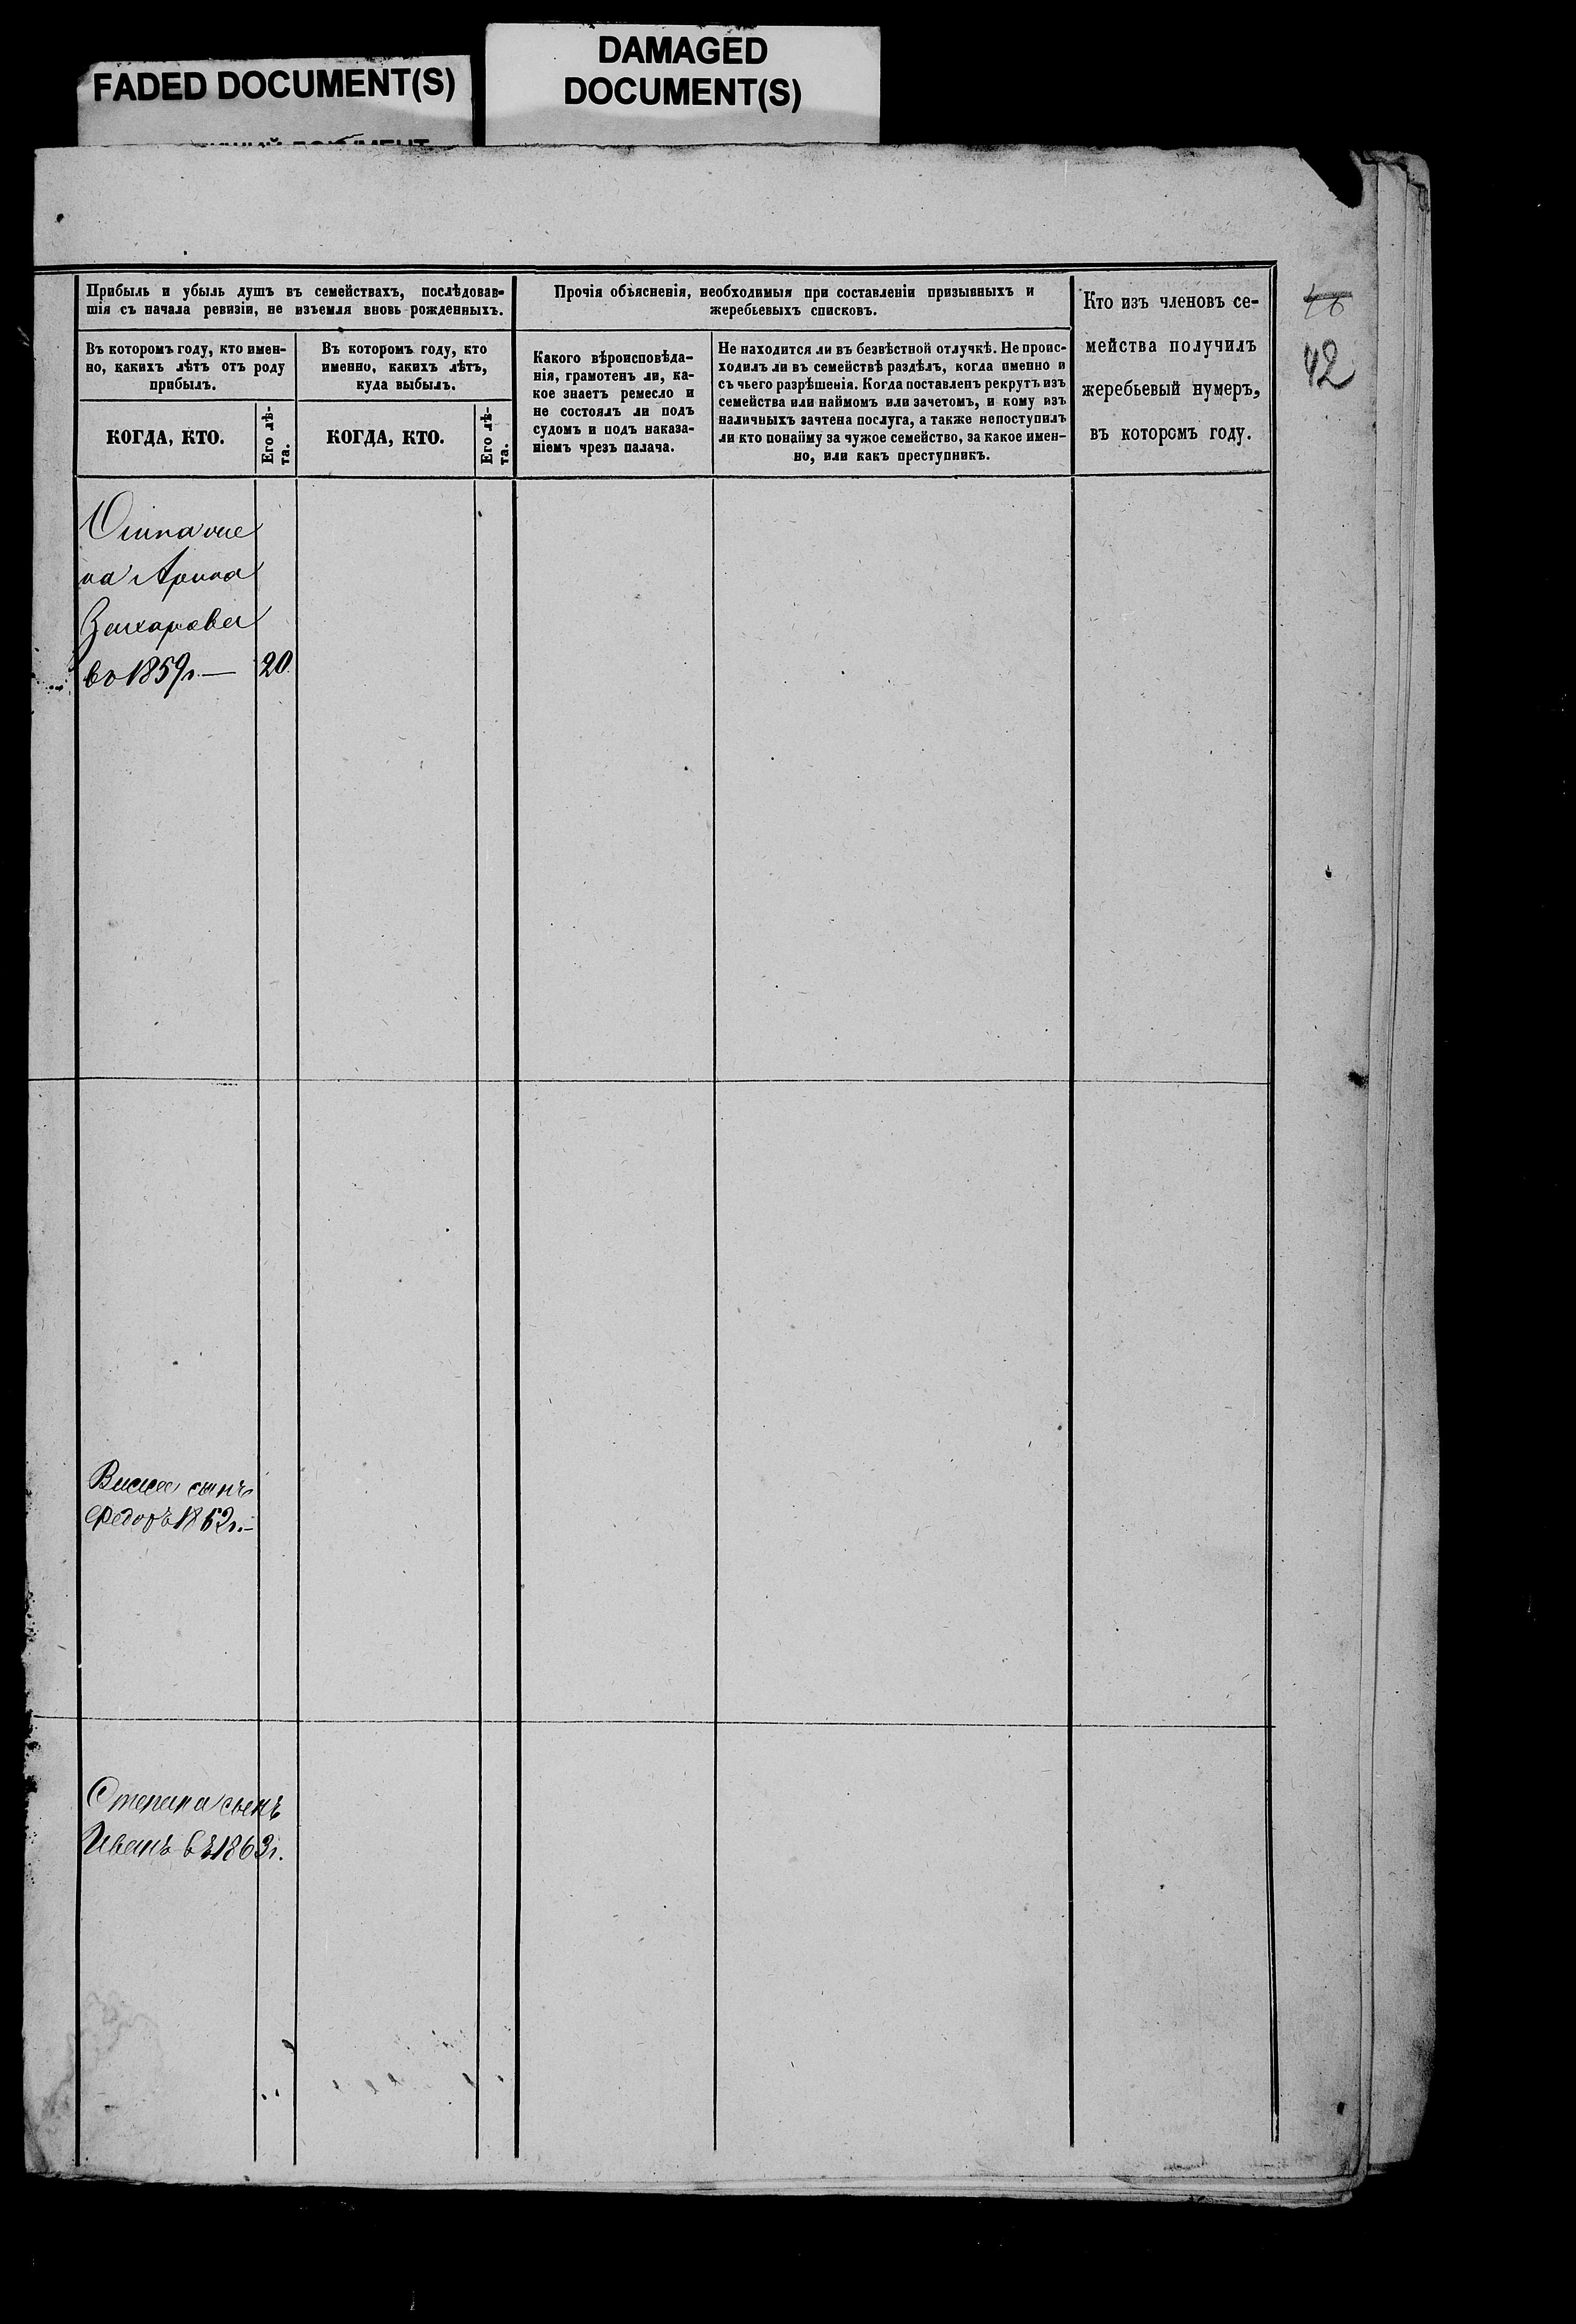 FADED DOCUMENT(S)
DAMAGED
DOCUMENT(S)
Прибыль и убыль душъ въ семействахъ, послѣдовав-
шія съ начала ревизіи, не изъемля вновь рожденныхъ.
Въ которомъ году, кто имен-
но, какихъ лѣтъ отъ роду
прибылъ.
КОГДА, КТО.
Его лѣ-
та.
Въ которомъ году, кто
именно, какихъ лѣтъ,
куда выбылъ.
КОГДА, КТО.
Его лѣ-
та.
Прочія объясненія, необходимыя при составленіи призывныхъ и
жеребьевыхъ списковъ.
Какого вѣроисповѣда-
нія, грамотенъ ли, ка-
кое знаетъ ремесло и
не состоялъ ли подъ
судомъ и подъ наказа-
ніемъ чрезъ палача.
Не находится ли въ безвѣстной отлучкѣ. Не проис-
ходилъ ли въ семействѣ раздѣлъ, когда именно и
съ чьего разрѣшенія. Когда поставленъ рекрутъ изъ
семейства или наймомъ или зачетомъ, и кому изъ
наличныхъ зачтена послуга, а также непоступилъ
ли кто понайму за чужое семейство, за какое имен-
но, или какъ преступникъ.
Кто изъ членовъ се-
мейства получилъ
жеребьевый нумеръ,
въ которомъ году.
42
Осипа же
на Арина
Захарова
во 1859г. — 20
сынъ
Федоръ 1862г. —
Степана сынъ
Иванъ въ 1863г.